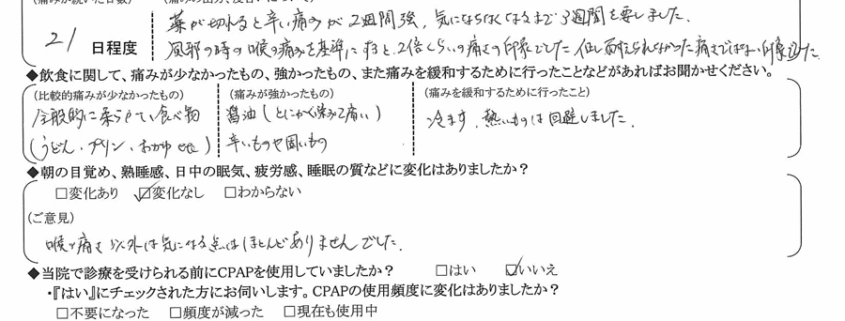 (痛みが続いた日数)
21 日程度
薬が切れると辛い痛みが2週間強、気にならなくなるまで3週間を要しました。
風邪の時の喉の痛みを基準にすると、2倍くらいの痛さの印象でした 但し耐えられなかった痛さではない印象
◆飲食に関して、痛みが少なかったもの、強かったもの、また痛みを緩和するために行ったことなどがあればお聞かせください。
(比較的痛みが少なかったもの) (痛みが強かったもの) (痛みを緩和するために行ったこと)
全般的に柔らかい食べ物 醤油(とにかく染みて痛い) 冷ます、熱いものは回避しました。
(うどん、プリン、おかゆ etc) 辛いものや固いもの
◆朝の目覚め、熟睡感、日中の眠気、疲労感、睡眠の質などに変化はありましたか?
□変化あり ☑変化なし □わからない
(ご意見)
喉の痛さ以外は気になる点はほとんどありませんでした。
◆当院で診療を受けられる前にCPAPを使用していましたか? □はい ☑いいえ
・『はい』にチェックされた方にお伺いします。CPAPの使用頻度に変化はありましたか?
□不要になった □頻度が減った □現在も使用中